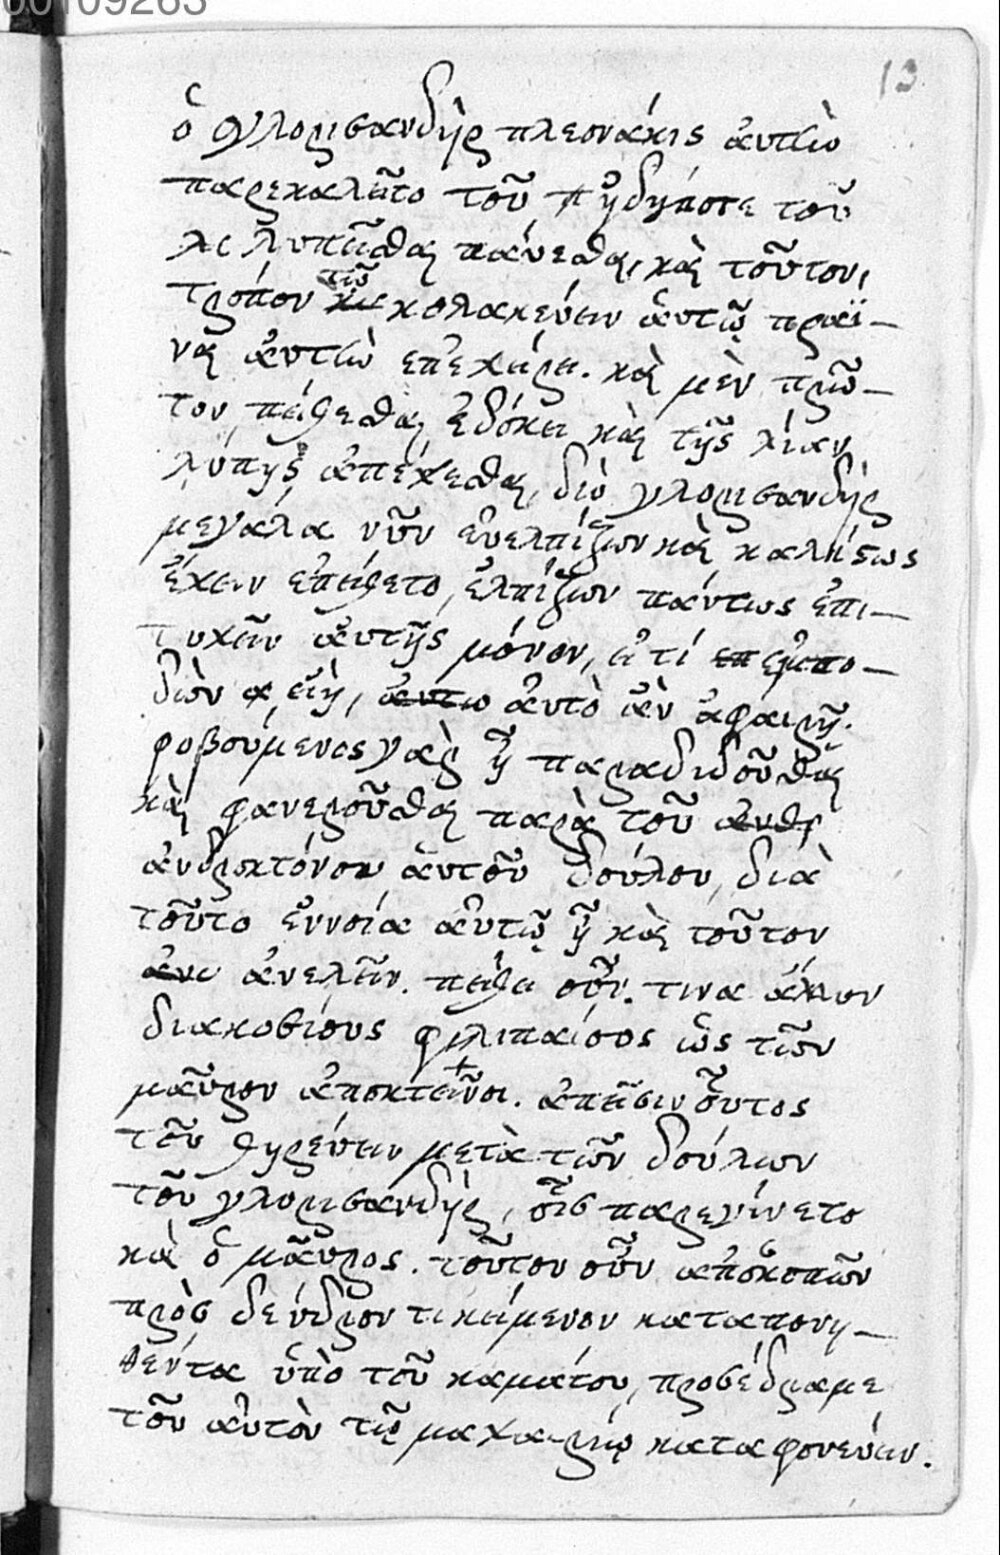 00109263
13
ὁ γλορισανδὴρ πλεονάκις ἀυτὴν
παρεκαλεῖτο τοῦ μηδήποτε τοῦ
λυπεῖσθαι πάυεσθαι, καὶ τοῦτον,
τρόπον τῷ κολακέυειν ἀυτῷ πραϊ-
ναι ἀυτὴν ἐπεχείρει. καὶ μὲν πρῶ-
τον πείθεσθαι ἐδόκει καὶ τῆς λίαν
λύπης ἀπέχεσθαι, διὸ γλορισανδὴρ
μεγάλα νῦν ἐυελπίζων καὶ καλήςως
ἔχειν ἐπείθετο, ἐλπίζων πάντως ἐπι-
τυχεῖν ἀυτῆς μόνον, ἐι τί ἐμπο-
διὼν εἴη, ἀυτὸ ἂν ἀφαιρῇ.
φοβούμενος γὰρ ἦ παραδιδοῦσθαι
καὶ φανεροῦσθαι παρὰ τοῦ ανθρ
ανδροκτόνου ἀυτοῦ δούλου, διὰ
τοῦτο ἐννοία ἀυτῷ ἦ καὶ τοῦτον
ἀνε ἀνελεῖν. πείθει οὖν. τινα ἄλλον
διακοσίους φιλιππαίους ὡς τὸν
μαῦρον ἀποκτεῖναι. ἀπεῖσιν οὗτος
τοῦ θηρέυειν μετὰ τῶν δούλων
τοῦ γλορισανδὴρ, οἷς παρεγίνετο
καὶ ὁ μαῦρος. τοῦτον οὖν ἀποσκοπῶν
πρὸς δένδρον τι κείμενον καταπονη-
θέντα ὑπὸ τοῦ καμάτου, προσέδραμε
τοῦ ἀυτὸν τῷ μαχαιρίῳ καταφονεύειν.